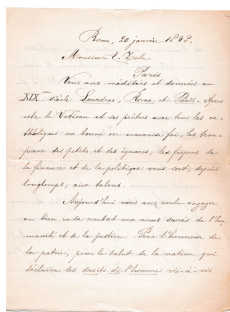 Rome, 20 janvier 1898.
Monsieur E. Zola
Paris
Vous avez méditées et données au
XIXme siècle Lourdes, Rome et Paris. Après
cela le Vatican et ses prêtres avec tous les ca-
tholiques en bonne ou mauvaise foi, les
des petits et des ignares, les fripons
de la finance et de la politique vous sont, depuis
longtemps, aux talons.
Aujourd'hui vous avez voulu engager
un bien rude combat aux noms sacrés de l'hu-
manité et de la justice. Pour l'honneur de
la patrie, pour le salut de la nation qui
déclara les droits de l'homme vis-à-vis